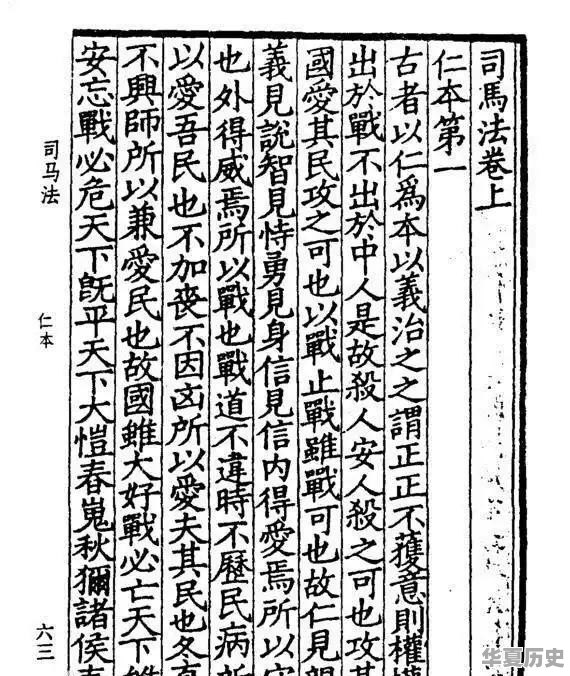 司馬法卷上
仁本第一
古者以仁爲本以義治之之謂正正不獲意則權權
出於戰不出於中人是故殺人安人殺之可也攻其
國愛其民攻之可也以戰止戰雖戰可也故仁見親
義見說智見恃勇見身信見信內得愛焉所以守
也外得威焉所以戰也戰道不違時不歷民病所
以愛吾民也不加喪不因凶所以愛夫其民也冬夏
不興師所以兼愛民也故國雖大好戰必亡天下雖
安忘戰必危天下既平天下大愷春蒐秋獮諸侯春
司马法
仁本
六三
华夏历史